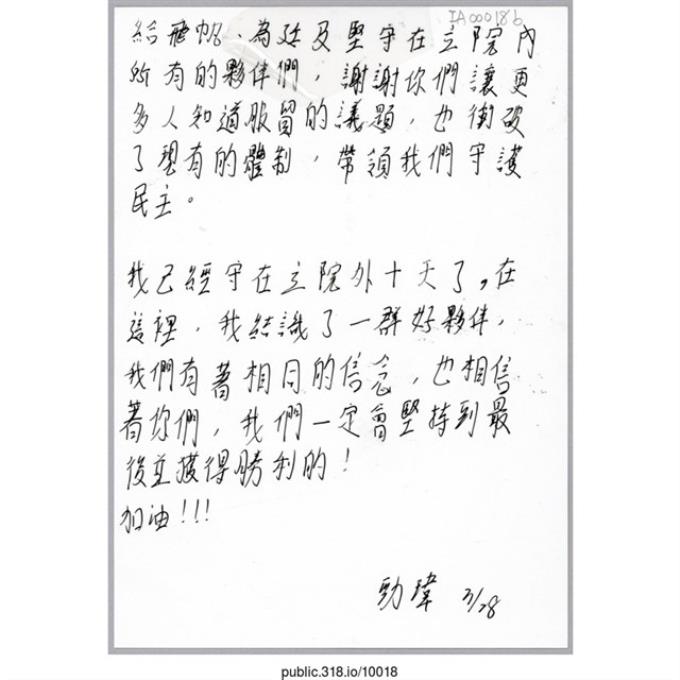 IA00018b
給飛帆、為廷及堅守在立院內
所有的夥伴們，謝謝你們讓更
多人知道服貿的議題，也衝破
了現有的體制，帶領我們守護
民主。
我已經守在立院外十天了，在
這裡，我結識了一群好夥伴，
我們有著相同的信念，也相信
著你們，我們一定會堅持到最
後並獲得勝利的！
加油！！！
勁瑋 3/28
public.318.io/10018